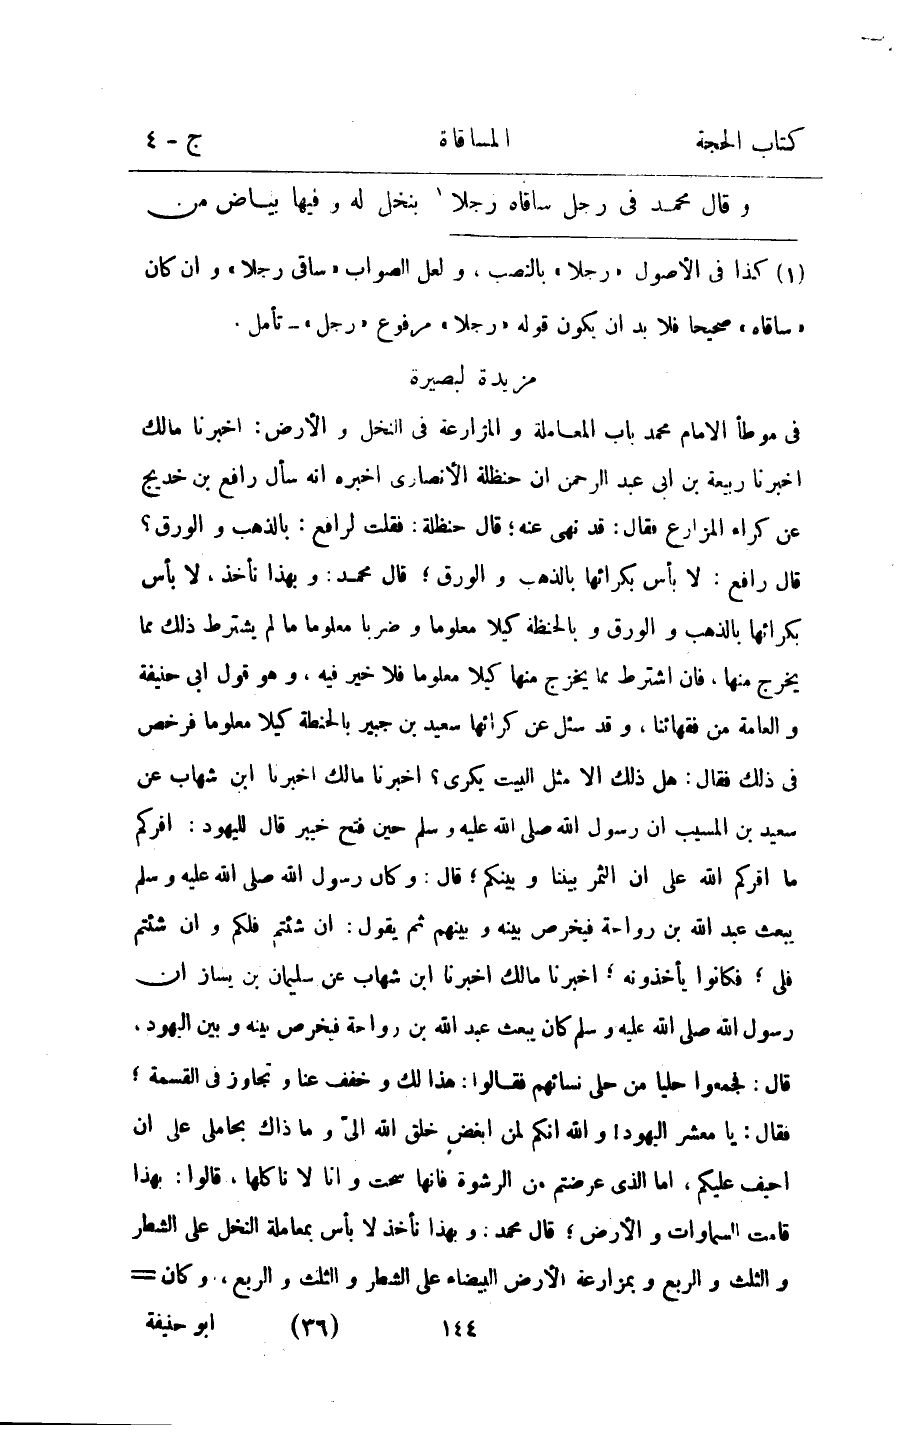 كتاب الحجة المساقاة ج - ٤
و قال محمد فى رجل ساقاه رجلا ١ بنخل له و فيها بياض من
(١) كذا فى الأصول «رجلا» بالنصب ، و لعل الصواب «ساقى رجلا» و ان كان
«ساقاه» صحيحا فلا بد ان يكون قوله «رجلا» مرفوع «رجل» - تأمل .
مزيدة لبصيرة
فى موطأ الامام محمد باب المعاملة و المزارعة فى النخل و الأرض : اخبرنا مالك
اخبرنا ربيعة بن ابى عبد الرحمن ان حنظلة الأنصارى اخبره انه سأل رافع بن خديج
عن كراء المزارع فقال : قد نهى عنه ؛ قال حنظلة : فقلت لرافع : بالذهب و الورق ؟
قال رافع : لا بأس بكرائها بالذهب و الورق ؛ قال محمد : و بهذا نأخذ ، لا بأس
بكرائها بالذهب و الورق و بالحنظة كيلا معلوما و ضربا معلوما ما لم يشترط ذلك مما
يخرج منها ، فان اشترط مما يخرج منها كيلا معلوما فلا خير فيه ، و هو قول ابى حنيفة
و العامة من فقهائنا ، و قد سئل عن كرائها سعيد بن جبير بالحنطة كيلا معلوما فرخص
فى ذلك فقال : هل ذلك الا مثل البيت يكرى ؟ اخبرنا مالك اخبرنا ابن شهاب عن
سعيد بن المسيب ان رسول الله صلى الله عليه و سلم حين فتح خيبر قال لليهود : اقركم
ما اقركم الله على ان الثمر بيننا و بينكم ؛ قال : و كان رسول الله صلى الله عليه و سلم
يبعث عبد الله بن رواحة فيخرص بينه و بينهم ثم يقول : ان شئتم فلكم و ان شئتم
فلى ؛ فكانوا يأخذونه ؛ اخبرنا مالك اخبرنا ابن شهاب عن سليمان بن يسار ان
رسول الله صلى الله عليه و سلم كان يبعث عبد الله بن رواحة فيخرص بينه و بين اليهود ،
قال : فجمعوا حليا من حلى نسائهم فقالوا : هذا لك و خفف عنا و تجاوز فى القسمة ؛
فقال : يا معشر اليهود ! و الله انكم لمن ابغض خلق الله الىّ و ما ذاك بحاملى على ان
احيف عليكم ، اما الذى عرضتم من الرشوة فانها سحت و انا لا ناكلها ، قالوا : بهذا
قامت السماوات و الأرض ؛ قال محمد : و بهذا نأخذ لا بأس بمعاملة النخل على الشطر
و الثلث و الربع و بمزارعة الأرض البيضاء على الشطر و الثلث و الربع ، و كان =
١٤٤ (٣٦) ابو حنيفة